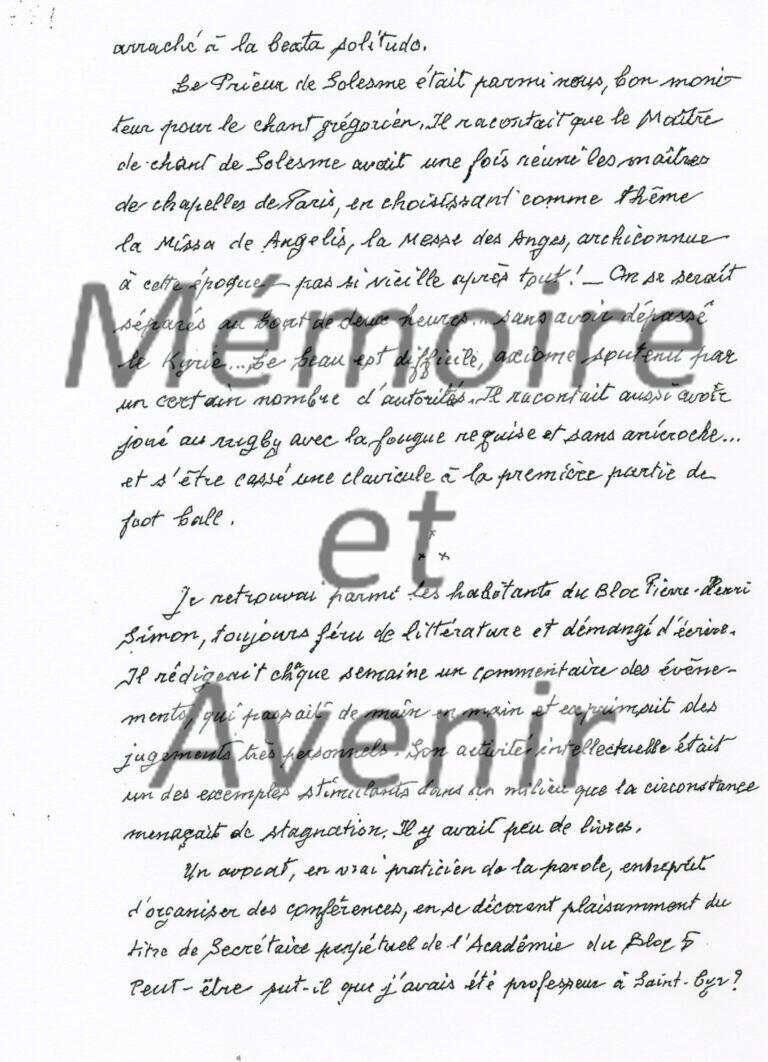 arraché à la beata solitudo.
Le Prieur de Solesme était parmi nous, bon moni-
teur pour le chant grégorien. Il racontait que le Maître
de chant de Solesme avait une fois réuni les maîtres
de chapelles de Paris, en choisissant comme thème
la Missa de Angelis, la Messe des Anges, archiconnue
à cette époque – pas si vieille après tout! – On se serait
séparés au bout de deux heures... sans avoir dépassé
le Kyrie... Le beau est difficile, axiome soutenu par
un certain nombre d'autorités. Il racontait aussi avoir
joué au rugby avec la fougue requise et sans anicroche...
et s'être cassé une clavicule à la première partie de
foot ball.
Mémoire
et
Avenir
Je retrouvai parmi les habitants du Bloc Pierre-Henri
Simon, toujours féru de littérature et démangé d'écrire.
Il rédigeait chaque semaine un commentaire des évène-
ments, qui passait de main en main et exprimait des
jugements très personnels. Son activité intellectuelle était
un des exemples stimulants dans un milieu que la circonstance
menaçait de stagnation. Il y avait peu de livres.
Un avocat, en vrai praticien de la parole, entreprit
d'organiser des conférences, en se décorant plaisamment du
titre de Secrétaire perpétuel de l'Académie du Bloc 5
Peut-être sut-il que j'avais été professeur à Saint-Cyr?